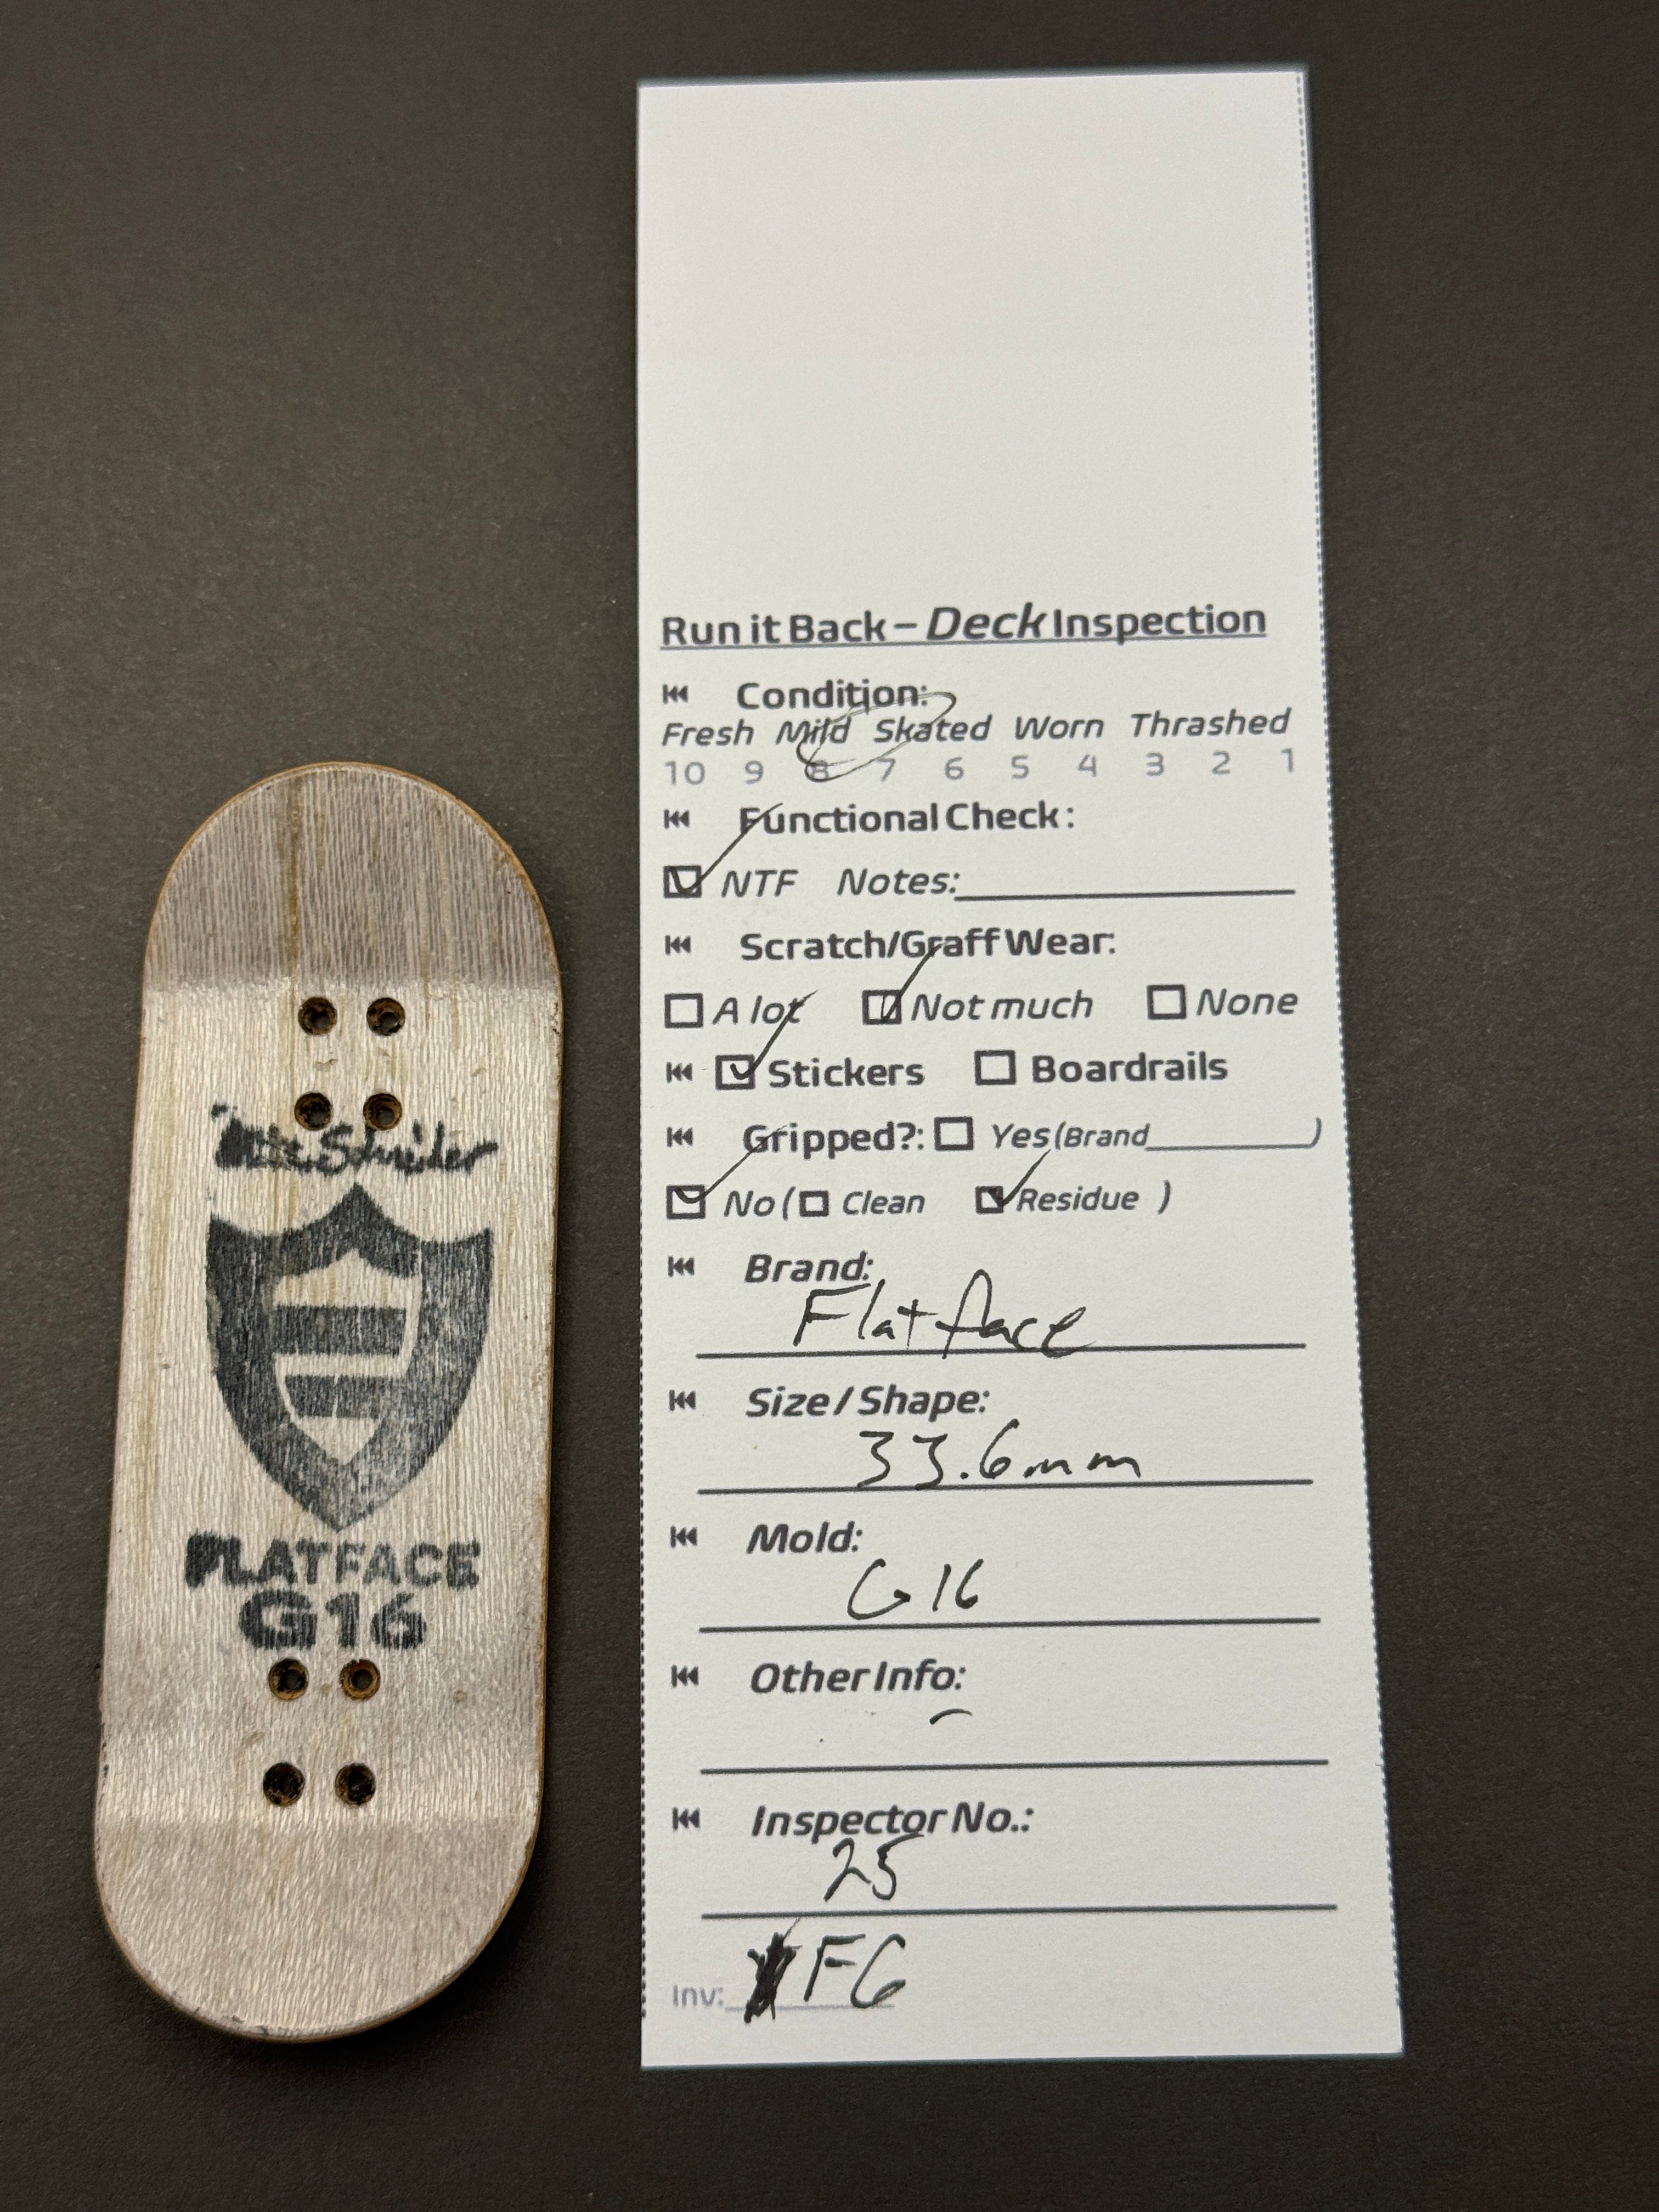 Schneider
FLATFACE
G16
Run it Back – Deck Inspection
Condition:
Fresh Mild Skated Worn Thrashed
10 9 8 7 6 5 4 3 2 1
Functional Check:
NTF Notes:
Scratch/Graff Wear:
A lot Not much None
Stickers Boardrails
Gripped?: Yes (Brand )
No ( Clean Residue )
Brand:
Flatface
Size / Shape:
33.6mm
Mold:
G16
Other Info:
Inspector No.:
25
Inv: FG